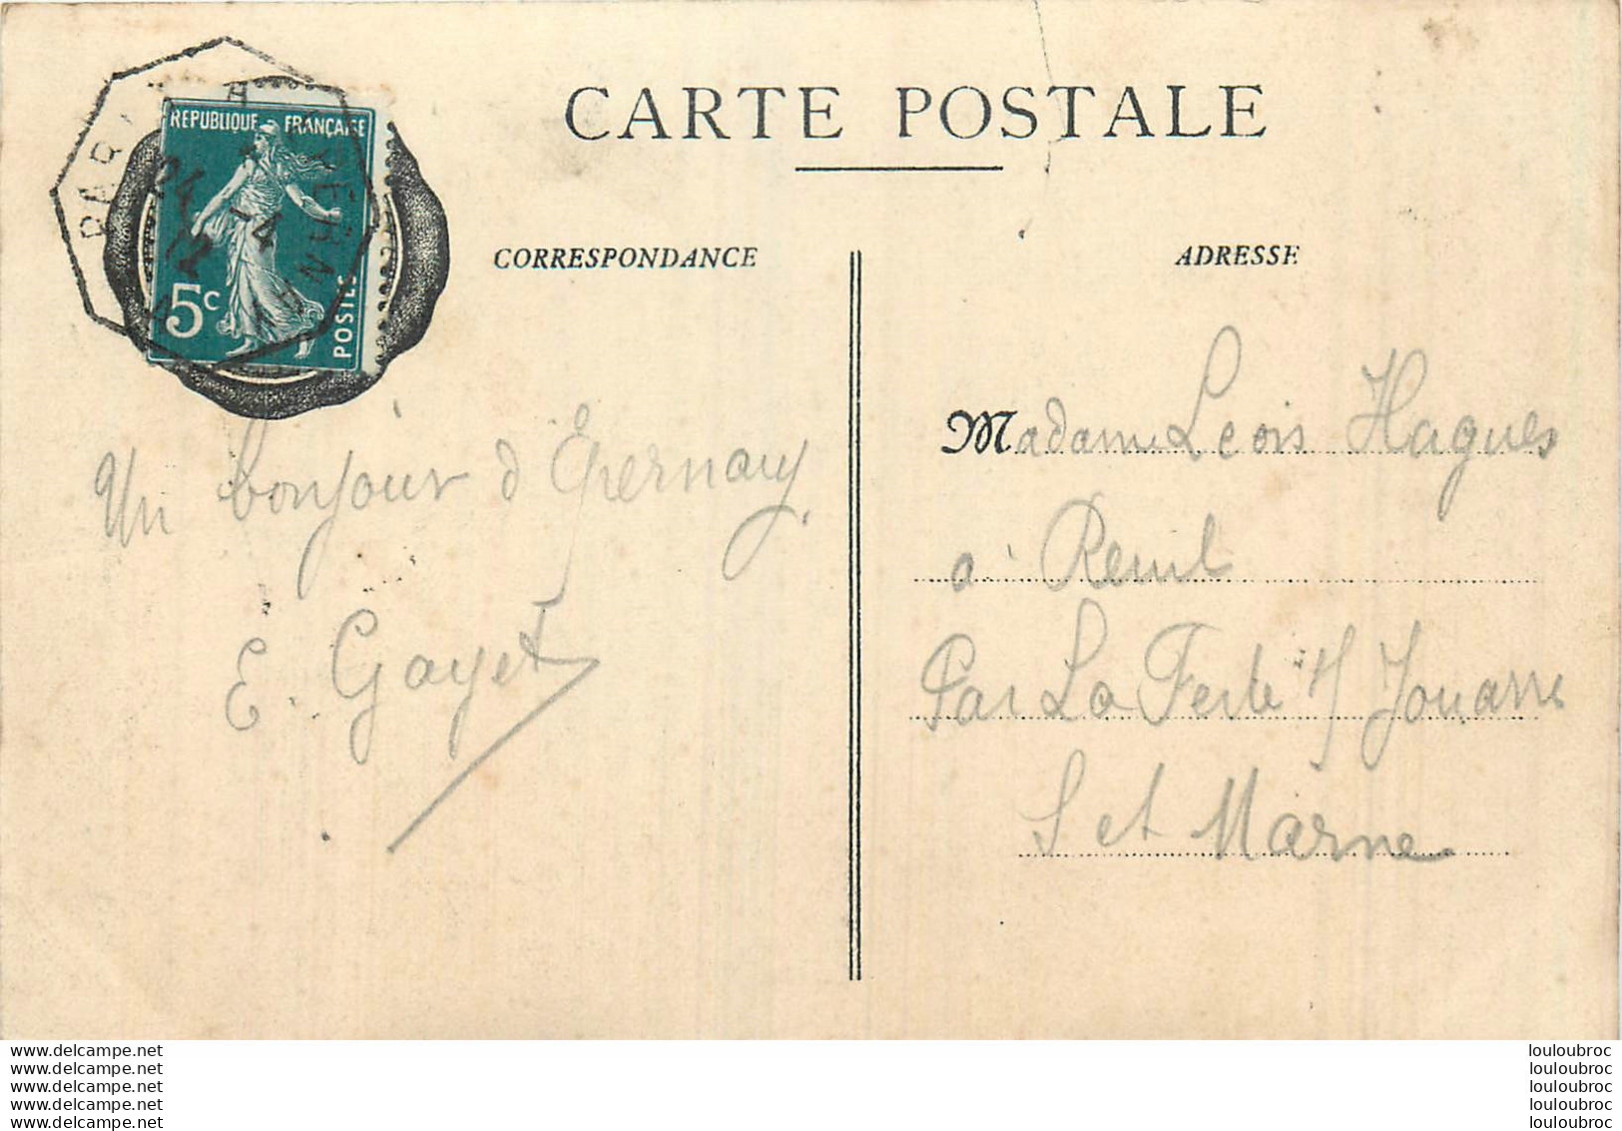 CARTE POSTALE
REPUBLIQUE FRANÇAISE
24 -4
12
5c
POSTES
PARIS A EPERNAY
CORRESPONDANCE
ADRESSE
Un bonjour d Épernay.
E. Gayet
Madame Leon Hagues
a Reuil
Par La Ferte s/ Jouarre
S et Marne
www.delcampe.net
www.delcampe.net
www.delcampe.net
www.delcampe.net
www.delcampe.net
louloubroc
louloubroc
louloubroc
louloubroc
louloubroc